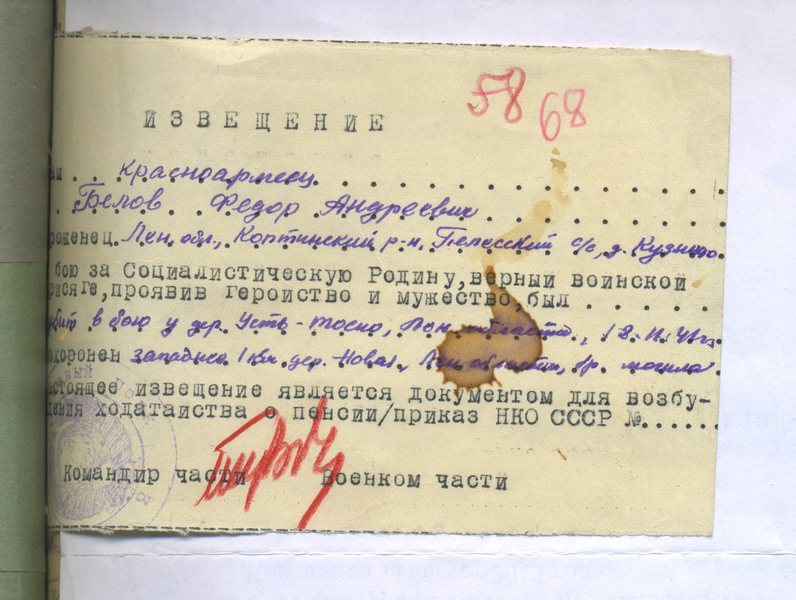 58 68
ИЗВЕЩЕНИЕ
красноармеец
Белов Федор Андреевич
роженец Лен. обл., Капшинский р-н, Пелесский с/с, д.
бою за Социалистическую Родину, верный воинской
рисяге, проявив героиство и мужество, был
убит в бою у дер. Усть-Тосно, Лен. области, 41г.
охоронен западнее 1 км. дер. Новая, Лен. области, бр. могила
стоящее извещение является документом для возбу-
дения ходатаиства о пенсии/приказ НКО СССР №
Командир части Военком части